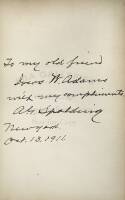 To my old friend
Ivers W. Adams
with my compliments
A G Spalding
New york
Oct. 13, 1911.